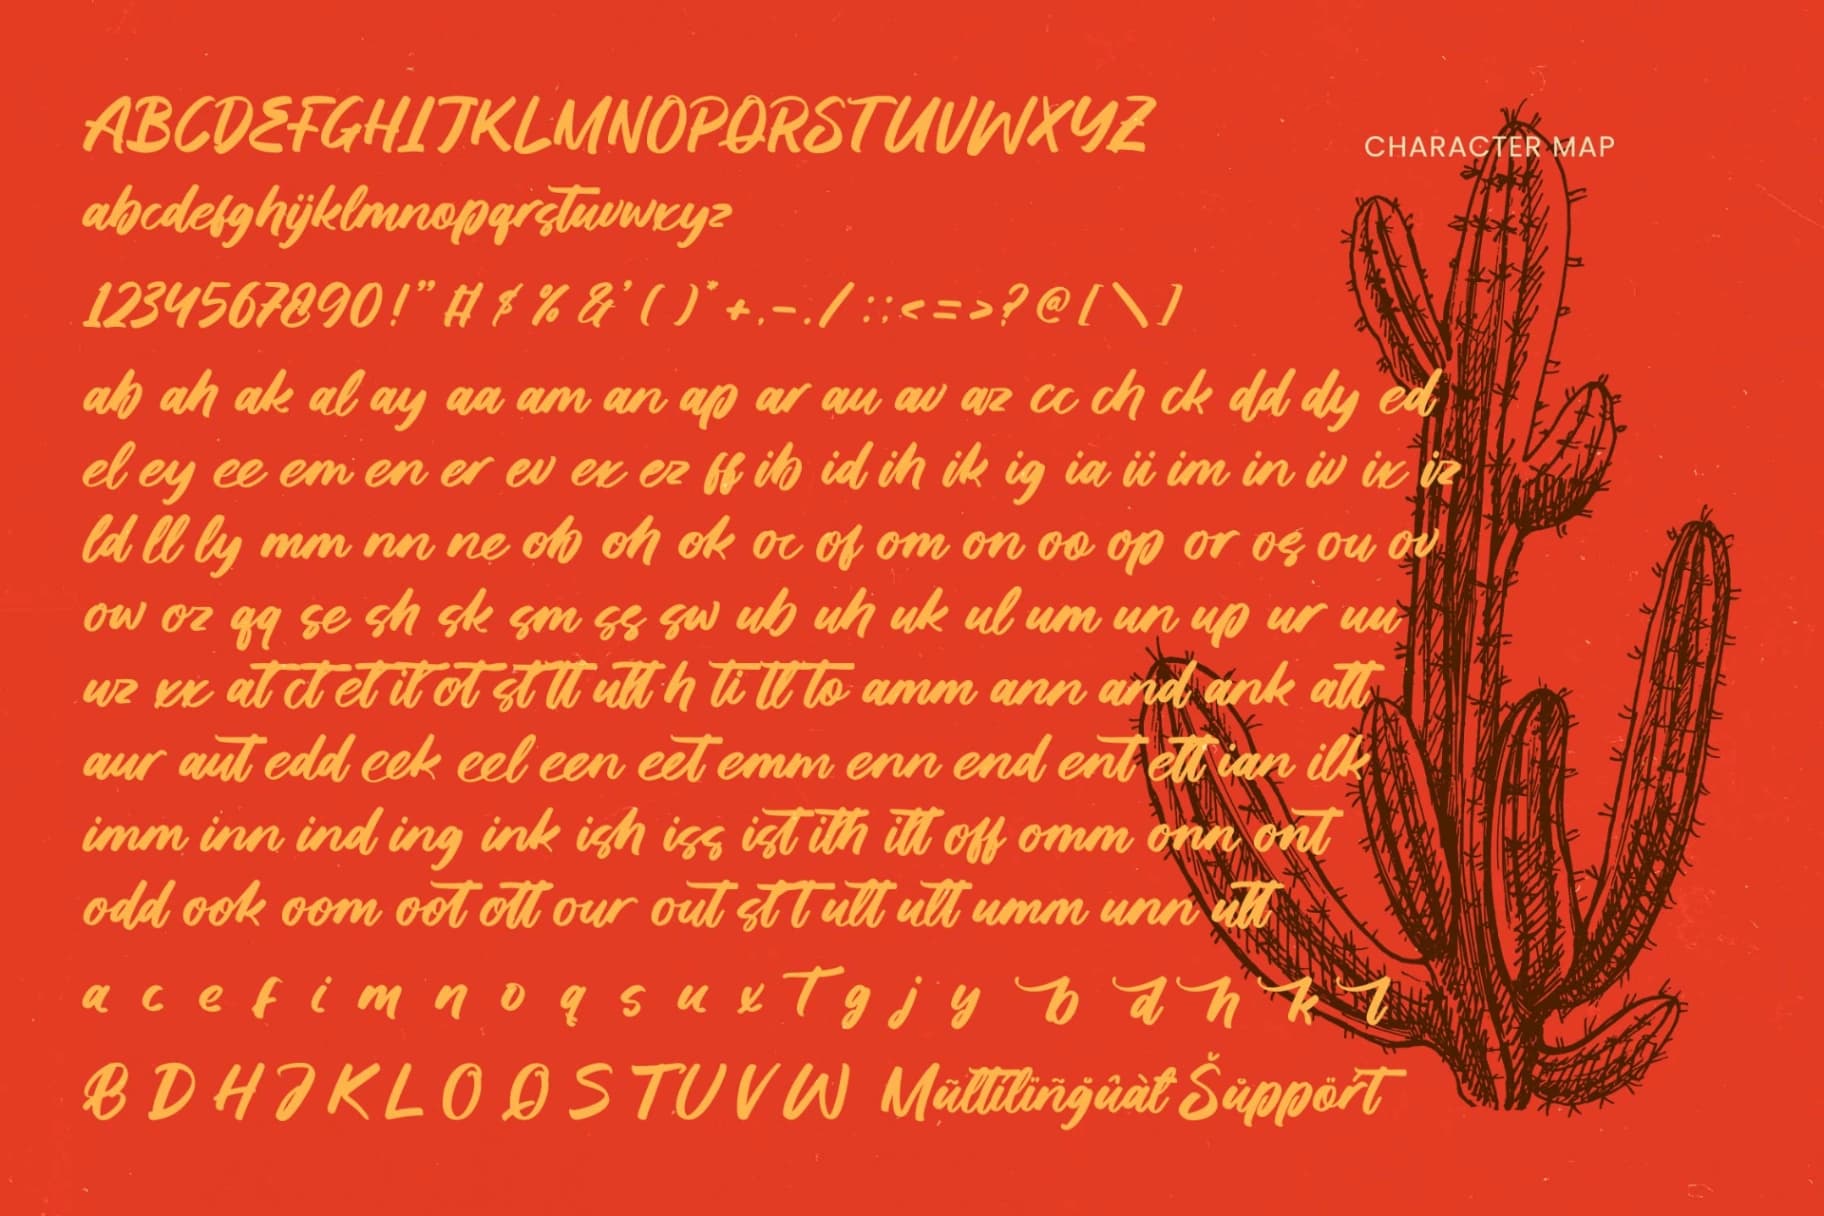 ABCDEFGHIJKLMNOPQRSTUVWXYZ
CHARACTER MAP
abcdefghijklmnopqrstuvwxyz
1234567890!"#$%&'()*+,-./:;<=>?@[\]
ab ah ak al ay aa am an ap ar au av az cc ch ck dd dy ed
el ey ee em en er ev ex ez ff ib id ih ik ig ia ii im in iv ix iz
ld ll ly mm nn ne ob oh ok oc of om on oo op or os ou ov
ow oz qq se sh sk sm ss sw ub uh uk ul um un up ur uu
uz xx at ct et it ot st tt utt h ti tl to amm ann and ank att
aur aut edd eek eel een eet emm enn end ent ett ian ilk
imm inn ind ing ink ish iss ist ith itt off omm onn ont
odd ook oom oot ott our out st t ult ult umm unn utt
a c e f i m n o q s u x T g j y b d h k l
B D H J K L O Q S T U V W Mũltilïñğûàł Šůppörť